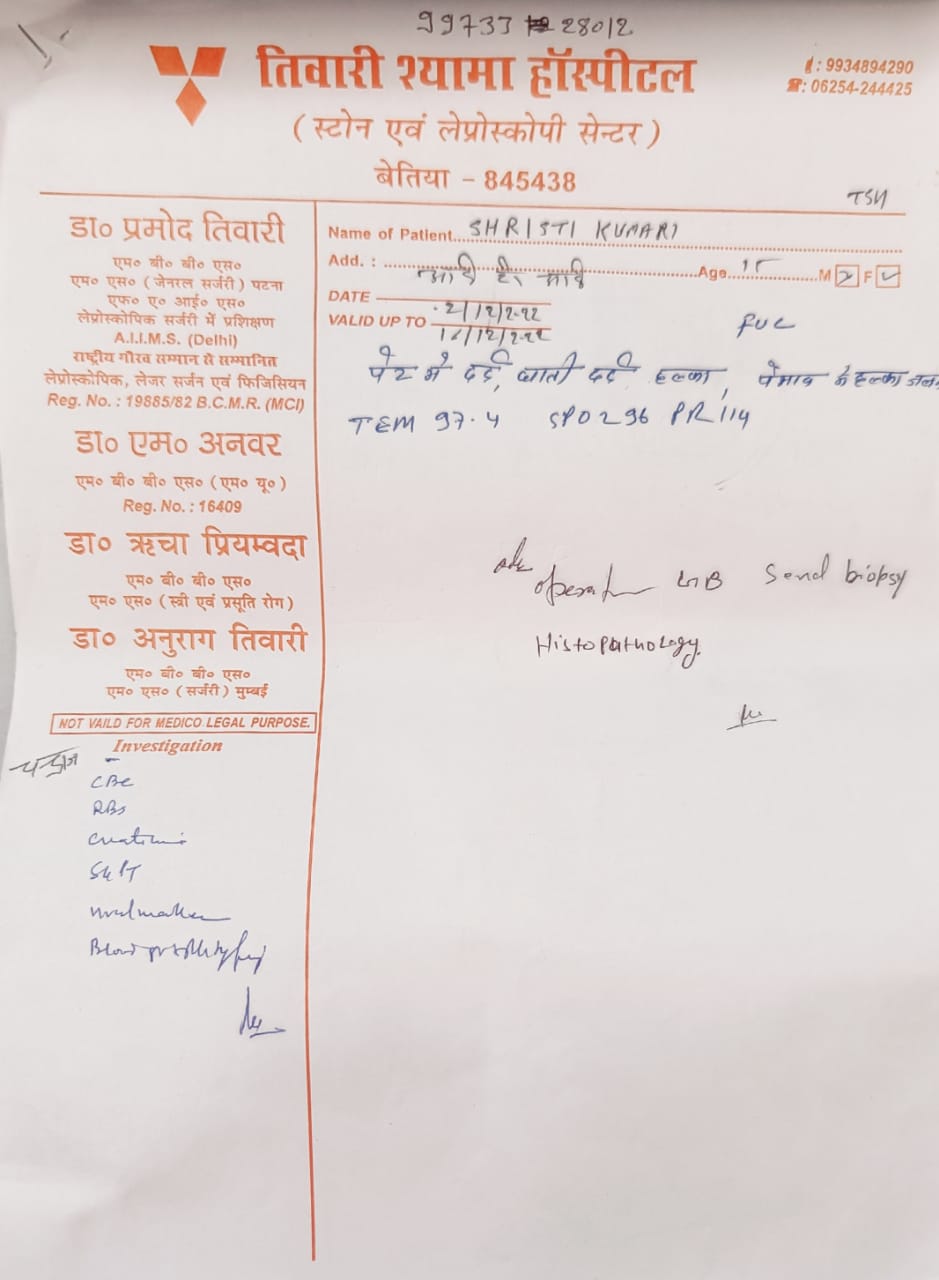 99733 28012
तिवारी श्यामा हॉस्पीटल
: 9934894290
: 06254-244425
( स्टोन एवं लेप्रोस्कोपी सेन्टर )
बेतिया - 845438
TSH
डा० प्रमोद तिवारी
एम० बी० बी० एस०
एम० एस० ( जेनरल सर्जरी ) पटना
एफ० ए० आई० एस०
लेप्रोस्कोपिक सर्जरी में प्रशिक्षण
A.I.I.M.S. (Delhi)
राष्ट्रीय गौरव सम्मान से सम्मानित
लेप्रोस्कोपिक, लेजर सर्जन एवं फिजिसियन
Reg. No. : 19885/82 B.C.M.R. (MCI)
डा० एम० अनवर
एम० बी० बी० एस० ( एम० यू० )
Reg. No. : 16409
डा० ऋचा प्रियम्वदा
एम० बी० बी० एस०
एम० एस० ( स्त्री एवं प्रसूति रोग )
डा० अनुराग तिवारी
एम० बी० बी० एस०
एम० एस० ( सर्जरी ) मुम्बई
NOT VAILD FOR MEDICO LEGAL PURPOSE.
Investigation
CBC
RBS
Blood
Name of Patient SHRISTI KUMARI
Add. : Age M F
DATE 2/12/2022
VALID UP TO
पेट मे दर्द, छाती दर्द हल्का, पेसाब मे हल्का जलन
TEM 97.4 SPO2 96 PR 114
Send biopsy
Histopathology